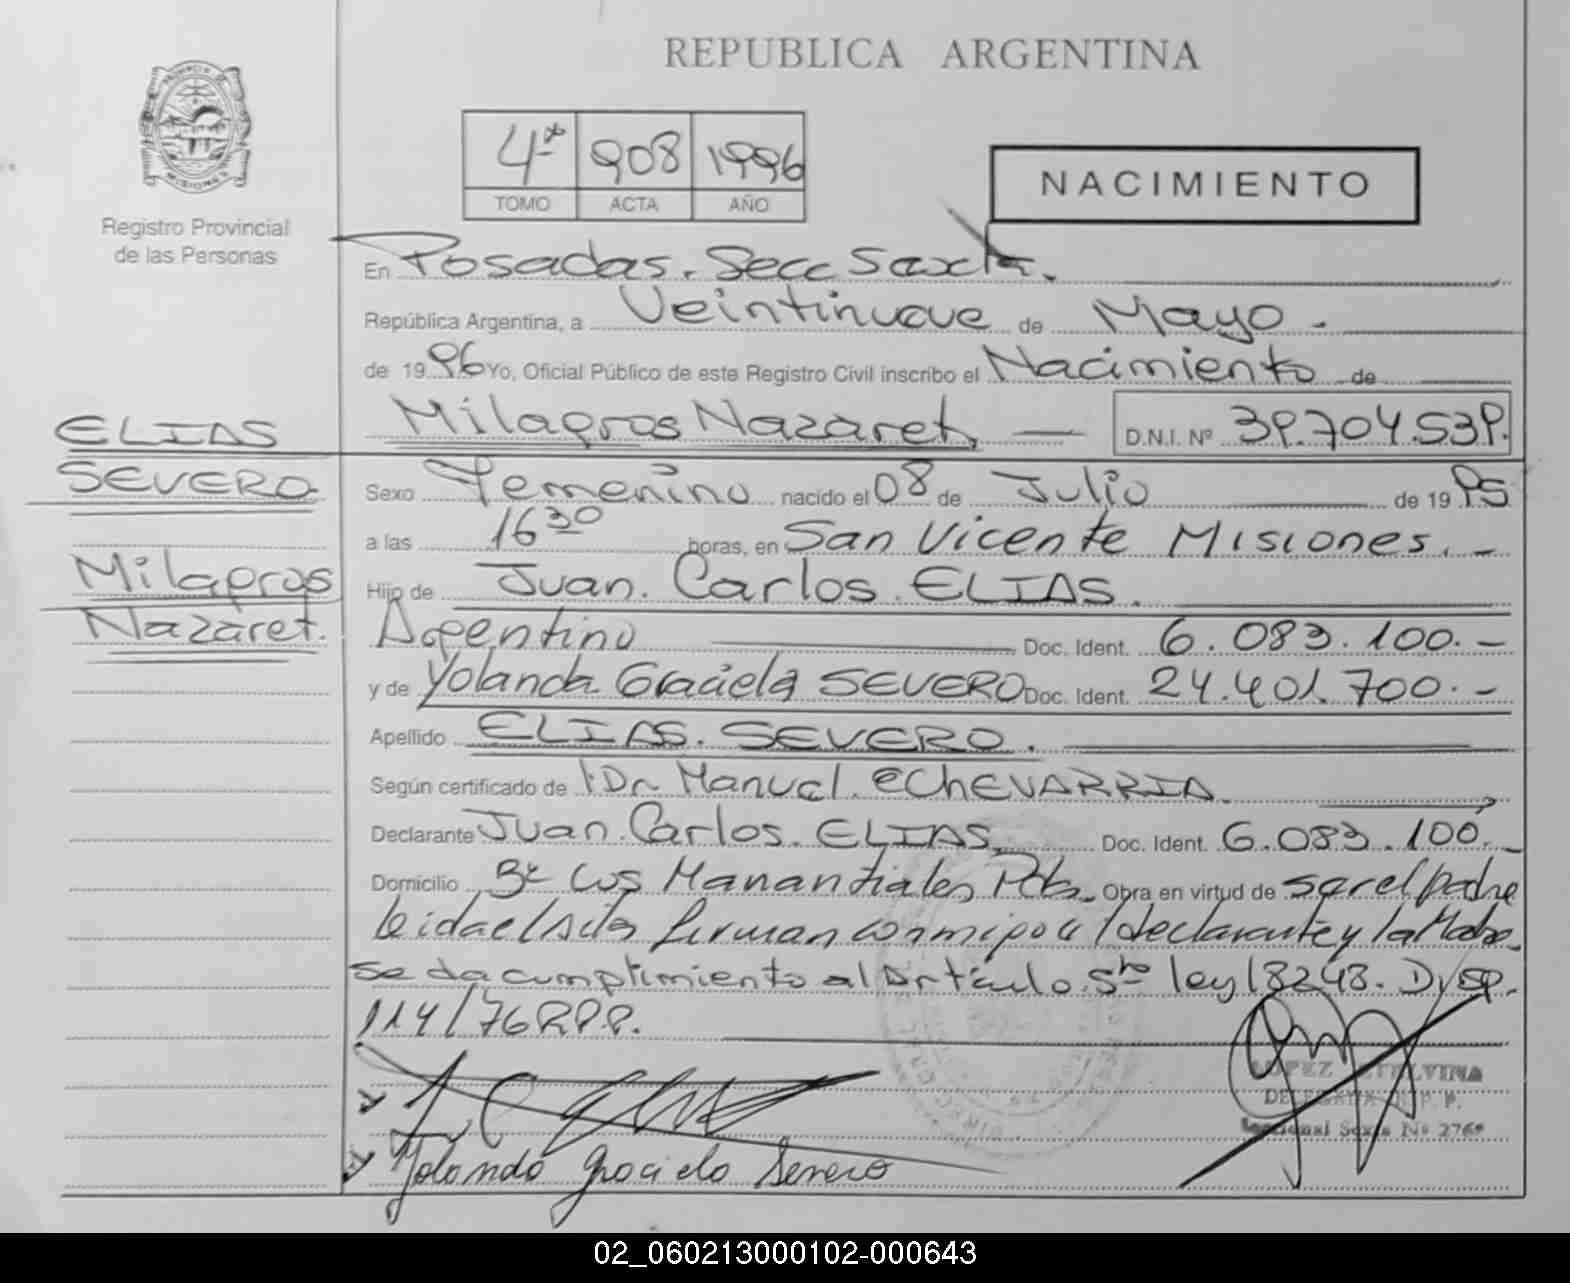 REPUBLICA ARGENTINA
PROVINCIA DE MISIONES
Registro Provincial
de las Personas
4º 908 1996
TOMO ACTA AÑO
NACIMIENTO
En Posadas. Secc Sexta.
República Argentina, a Veintinueve de Mayo.
de 1996 Yo, Oficial Público de este Registro Civil inscribo el Nacimiento de
Milagros Nazaret, D.N.I. Nº 39.704.539.
ELIAS
SEVERO
Milagros
Nazaret.
Sexo Femenino nacido el 08 de Julio de 1995
a las 16 30 horas, en San Vicente Misiones. -
Hijo de Juan. Carlos. ELIAS.
Argentino Doc. Ident. 6.083.100.-
y de Yolanda Graciela SEVERO Doc. Ident. 24.401.700.-
Apellido ELIAS. SEVERO.
Según certificado de Dr. Manuel. EChEVARRIA.
Declarante Juan. Carlos. ELIAS. Doc. Ident. 6.083.100.-
Domicilio Bº Los Manantiales Pdas. Obra en virtud de ser el padre
leida el Acta firman conmigo el declarante y la Madre.
Se da cumplimiento al Artículo 5to ley 18248. Disp.
114/76 RPP.
LOPEZ ETELVINA
DELEGADA R.P.P.
Seccional Sexta Nº 276
Yolanda Graciela Severo
02_060213000102-000643